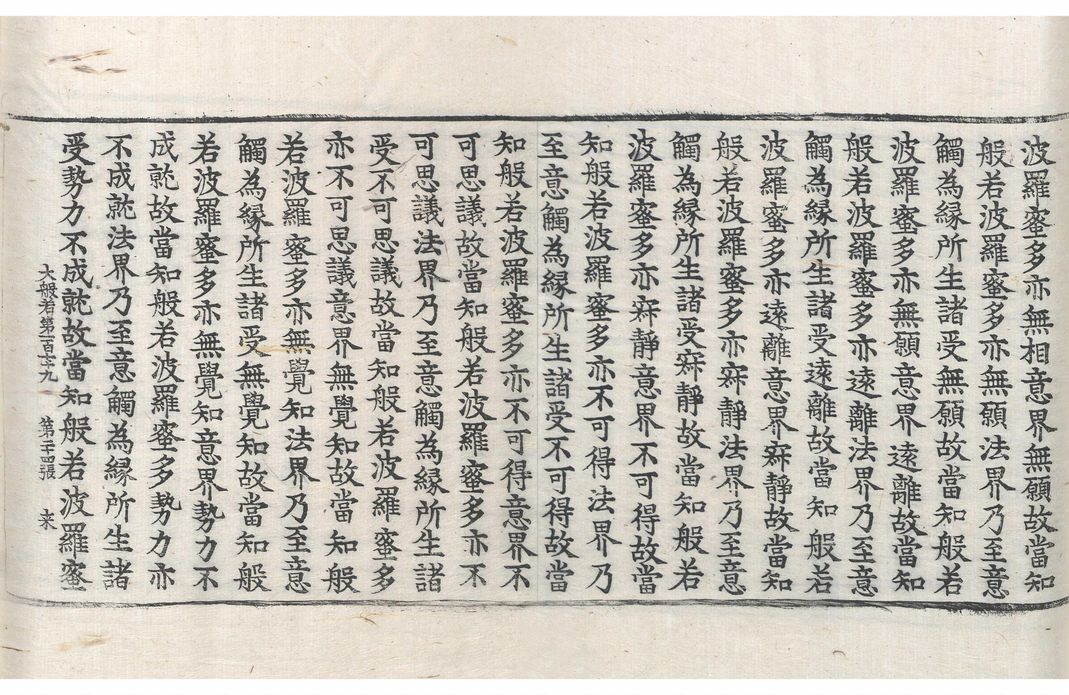 波羅蜜多亦無相意界無願故當知
般若波羅蜜多亦無願法界乃至意
觸為緣所生諸受無願故當知般若
波羅蜜多亦無願意界遠離故當知
般若波羅蜜多亦遠離法界乃至意
觸為緣所生諸受遠離故當知般若
波羅蜜多亦遠離意界寂靜故當知
般若波羅蜜多亦寂靜法界乃至意
觸為緣所生諸受寂靜故當知般若
波羅蜜多亦寂靜意界不可得故當
知般若波羅蜜多亦不可得法界乃
至意觸為緣所生諸受不可得故當
知般若波羅蜜多亦不可得意界不
可思議故當知般若波羅蜜多亦不
可思議法界乃至意觸為緣所生諸
受不可思議故當知般若波羅蜜多
亦不可思議意界無覺知故當知般
若波羅蜜多亦無覺知法界乃至意
觸為緣所生諸受無覺知故當知般
若波羅蜜多亦無覺知意界勢力不
成就故當知般若波羅蜜多勢力亦
不成就法界乃至意觸為緣所生諸
受勢力不成就故當知般若波羅蜜
大般若第一百七十九 第二十四張 来